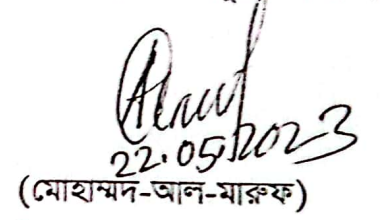 22.05.2023
(মোহাম্মদ-আল-মারুফ)